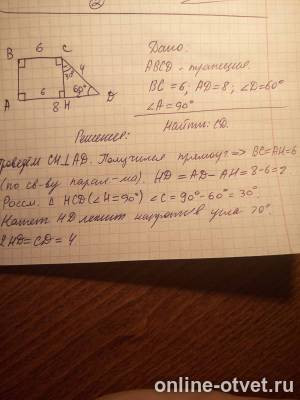 B 6 C
30° 4
A 6 8 H 60° D
Дано:
ABCD - трапеция
BC = 6; AD = 8; ∠D = 60°
∠A = 90°
Найти: CD.
Решение:
Проведём CH⊥AD. Получился прямоуг => BC=AH=6
(по св-ву парал-ма). HD = AD - AH = 8-6=2
Рассм. Δ HCD (∠H=90°) ∠C = 90°-60° = 30°
Катет HD лежит напротив угла 30°.
2HD = CD = 4
online-otvet.ru